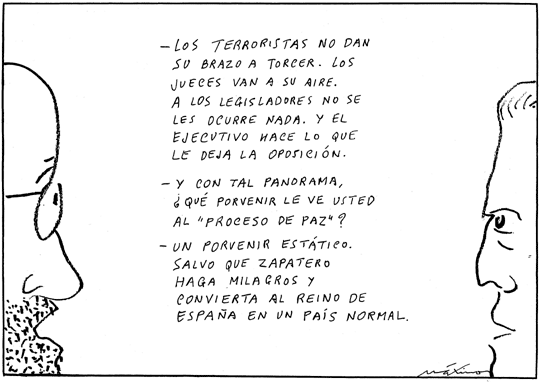 — LOS TERRORISTAS NO DAN
SU BRAZO A TORCER. LOS
JUECES VAN A SU AIRE.
A LOS LEGISLADORES NO SE
LES OCURRE NADA. Y EL
EJECUTIVO HACE LO QUE
LE DEJA LA OPOSICIÓN.
— Y CON TAL PANORAMA,
¿QUÉ PORVENIR LE VE USTED
AL "PROCESO DE PAZ"?
— UN PORVENIR ESTÁTICO.
SALVO QUE ZAPATERO
HAGA MILAGROS Y
CONVIERTA AL REINO DE
ESPAÑA EN UN PAÍS NORMAL.
máximo